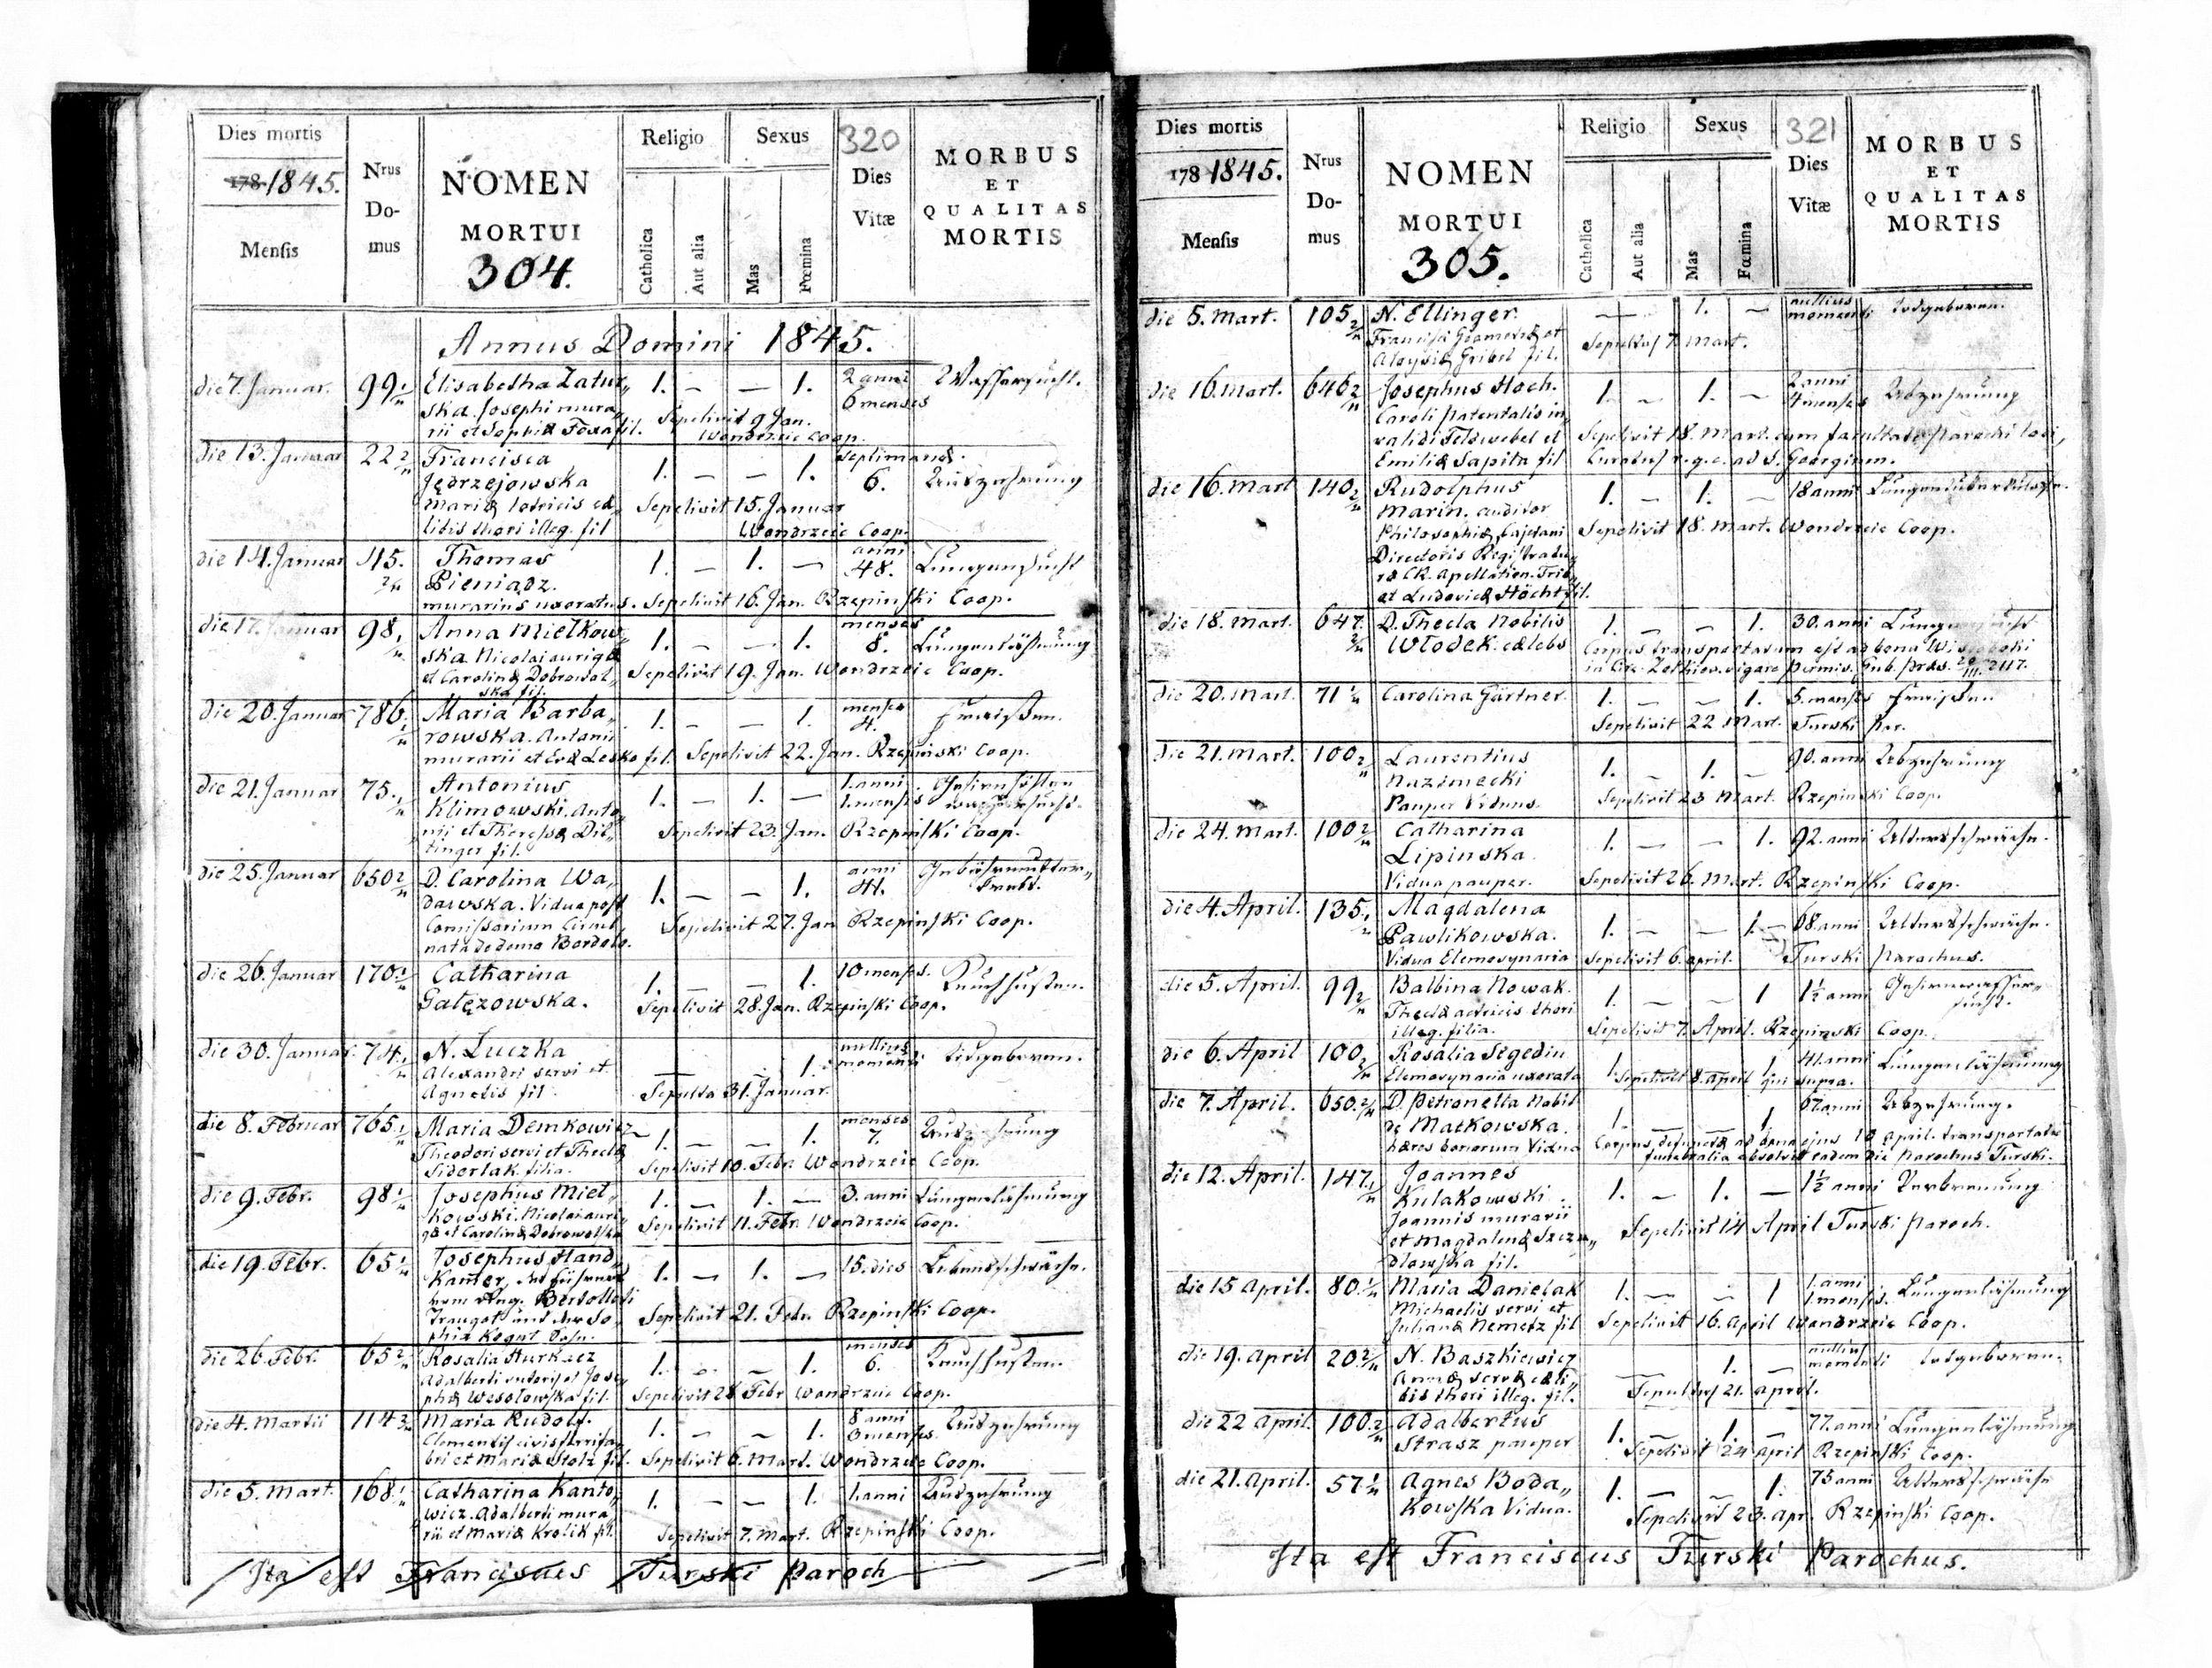 Dies mortis
178 1845.
Mensis
Nrus
Do-
mus
NOMEN
MORTUI
304.
Religio
Catholica
Aut alia
Sexus
Mas
Fœmina
320
Dies
Vitæ
MORBUS
ET
QUALITAS
MORTIS
Annus Domini 1845.
die 7. Januar. 99 1/n Elisabetha Zatur„ 1. – – 1. 2 anni 6 menses Wassersucht.
ska. Josephi mura„
rii et Sophiæ Foxa fil. Sepelivit 9 Jan.
Wondrzeic Coop.
die 13. Januar 22 2/n Francisca 1. – – 1. septimanæ 6. Auszehrung
Jędrzejowska
Mariæ lotricis cæ
libis thori illeg. fil Sepelivit 15. Januar
Wondrzeic Coop.
die 14. Januar 45. 2/n Thomas 1. – 1. – anni 48. Lungensucht
Pieniądz.
murarius uxoratus. Sepelivit 16. Jan. Rzepinski Coop.
die 17. Januar 98 1/n Anna Mietkow„ 1. – – 1. menses 8. Lungenlähmung
ska Nicolai aurigæ
et Carolinæ Dobrowol„ Sepelivit 19. Jan. Wondrzeic Coop.
ska fil.
die 20. Januar 786 1/n Maria Barba„ 1. – – 1. menses 4. Fraisen.
rowska. Antonii
murarii et Evæ Lesko fil. Sepelivit 22. Jan. Rzepinski Coop.
die 21. Januar 75. 1/n Antonius 1. – 1. – 1. anni 1. mensis Gehirnhöhlen
Klimowski. Anto„ wassersucht.
nii et Theresiæ Dil„ Sepelivit 23. Jan. Rzepinski Coop.
tinger fil.
die 25. Januar 650 2/n D. Carolina Wa„ 1. – – 1. anni 41. Gebährmutter„
dawska. Vidua post krebs.
Comissarium Circul.
nata de domo Bordolo. Sepelivit 27. Jan Rzepinski Coop.
die 26. Januar 170 1/n Catharina 1. – – 1. 10 menses. Keuchhusten.
Gałęzowska. Sepelivit 28. Jan. Rzepinski Coop.
die 30. Januar. 74. 1/n N. Luczka – 1. nullius momenti todgeboren.
Alexandri servi et
Agnetis fil. Sepulta 31. Januar.
die 8. Februar 765. 1/n Maria Demkowicz 1. – – 1. menses 7. Auszehrung
Theodori servi et Theclæ
Siderlak. filia. Sepelivit 10. Febr. Wondrzeic Coop.
die 9. Febr. 98 1/n Josephus Miet„ 1. – 1. – 3. anni Lungenlähmung
kowski. Nicolai auri„
gæ et Carolinæ Dobrowolska Sepelivit 11. Febr. Wondrzeic Coop.
die 19. Febr. 65 1/n Josephus Hand„ 1. – 1. – 15. dies Lebensschwäche.
Kanter,
vom Aug. Bertolletti
Traugot und der So„ Sepelivit 21. Febr. Rzepinski Coop.
phia Kogut Sohn.
die 26. Febr. 65 2/n Rosalia Hurkacz 1. – – 1. menses 6. Keuchhusten.
Adalberti sutoris et Jose„
phæ Wesołowska fil. Sepelivit 28 Febr Wondrzeic Coop.
die 4. Martii 114 2/n Maria Rudolf. 1. – – 1. 8 anni 3 menses. Auszehrung
Clementis civis ferrifa„
bri et Mariæ Stolz fil. Sepelivit 6. Mart. Wondrzeic Coop.
die 5. Mart. 168 1/n Catharina Kanto„ 1. – – 1. 1. anni Auszehrung
wicz. Adalberti mura„
rii et Mariæ Krolik fil. Sepelivit 7. Mart. Rzepinski Coop.
Ita est Franciscus Turski Paroch
Dies mortis
178 1845.
Mensis
Nrus
Do-
mus
NOMEN
MORTUI
305.
Religio
Catholica
Aut alia
Sexus
Mas
Fœmina
321
Dies
Vitæ
MORBUS
ET
QUALITAS
MORTIS
die 5. Mart. 105 2/n N. Ellinger – 1. – nullius momenti todgeboren.
Francisci Geometræ et
Aloysiæ Gribel fil. Sepultus 7. Mart.
die 16. Mart. 646 2/n Josephus Hoch. 1. – 1. – 2 anni 4 menses Abzehrung
Caroli Patentalis in„
validi Feldwebel et Sepelivit 18. Mart. cum facultate Parochi loci,
Emiliæ Sapita fil Curatus r. g. c. ad S. Georgium.
die 16. Mart 140 2/n Rudolphus 1. – 1. – 18 anni Lungentuberkulose.
Marin. auditor
Philosophiæ, Cajetani Sepelivit 18. Mart. Wondrzeic Coop.
Directoris Registratu„
ræ CR. Apellation. Trib„
et Ludovicæ Höcht fil.
die 18. Mart. 647. 2/n D. Thecla Nobilis 1. – – 1. 30. anni Lungensucht
Włodek. cælebs Corpus transportatum est ad bona
in Circ. Zolkiew. vigore permis. Gub. præs.
die 20. Mart. 71 1/n Carolina Gärtner. 1. – – 1. 5. menses Fraisen.
Sepelivit 22 Mart. Turski Par.
die 21. Mart. 100 2/n Laurentius 1. – 1. – 90. anni Abzehrung
Nazimecki
Pauper Viduus. Sepelivit 23 Mart. Rzepinski Coop.
die 24. Mart. 100 2/n Catharina 1. – – 1. 92. anni Altersschwäche.
Lipinska.
Vidua pauper. Sepelivit 26. Mart. Rzepinski Coop.
die 4. April. 135. 1/n Magdalena 1. – – 1. 68. anni Altersschwäche.
Pawlikowska.
Vidua Elemosynaria Sepelivit 6. april. Turski Parochus.
die 5. April. 99 2/n Balbina Nowak. 1. – – 1 1½ anni Gehirnwasser„
Theclæ actricis thori sucht.
illeg. filia. Sepelivit 7. April. Rzepinski Coop.
die 6. April 100 2/n Rosalia Segedin 1. 1 41. anni Lungenlähmung
Elemosynaria uxorata Sepelivit 8. april qui supra.
die 7. April. 650. 2/n D. Petronella Nobil 1. 1 67 anni Abzehrung.
de Małkowska.
hæres bonorum Vidua Corpus defunctæ ad bona ejus 10 april. transportata
funebralia absolvit eadem die Parochus Turski.
die 12. April. 147. 1/n Joannes 1. – 1. – 1½ anni Verbrennung
Kulakowski.
Joannis murarii Sepelivit 14 April Turski Paroch.
et Magdalenæ Szczu„
dłowska fil.
die 15 April. 80. 1/n Maria Danielak 1. – – 1 1. anni 1. mensis. Lungenlähmung
Michaelis servi et
Julianæ Nemetz fil Sepelivit 16. April Wondrzeic Coop.
die 19. April 20 2/n N. Baszkiewicz 1. – nullius momenti todgeboren.
Annæ servæ cæli„
bis thori illeg. fil. Sepultus 21. april.
die 22 April. 100. 2/n Adalbertus 1. – 1. – 77. anni Lungenlähmung
Strasz pauper Sepelivit 24 April Rzepinski Coop.
die 21. April. 57 1/n Agnes Boda„ 1. – – 1. 75 anni Altersschwäche
kowska Vidua. Sepelivit 23. Apr. Rzepinski Coop.
Ita est Franciscus Turski Parochus.